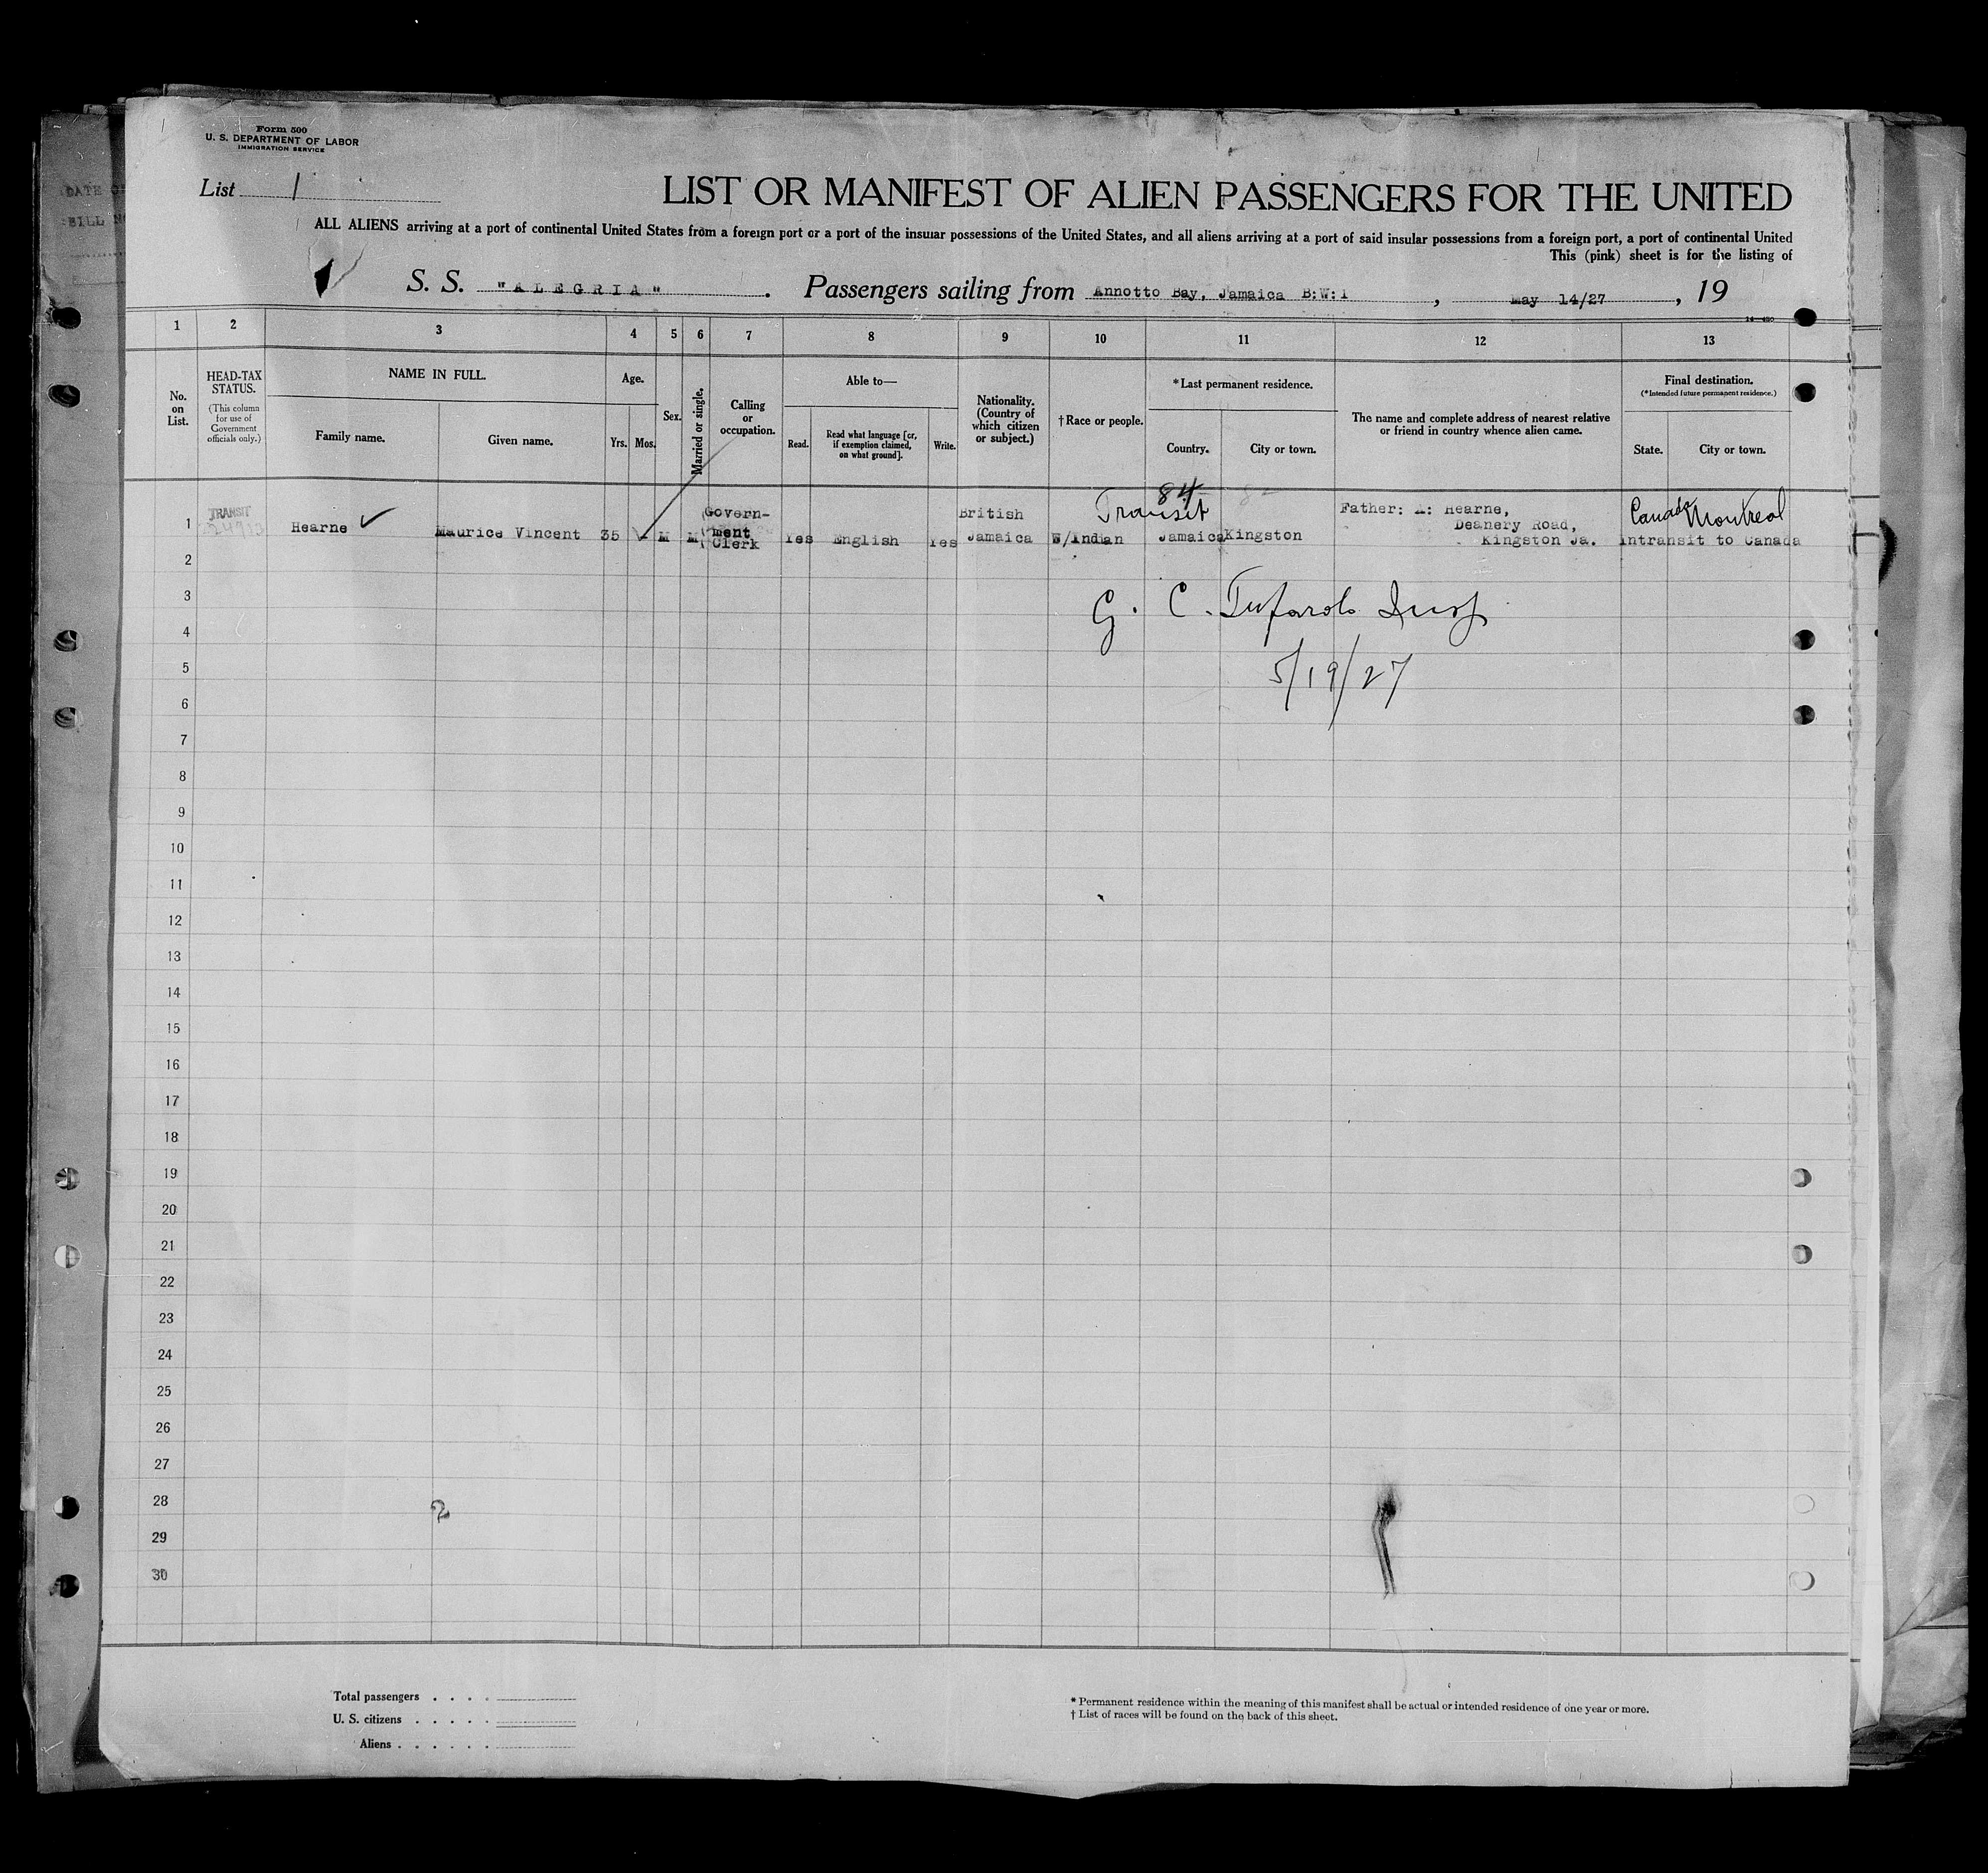 DATE O
BILL N
Form 500
U. S. DEPARTMENT OF LABOR
IMMIGRATION SERVICE
List 1
LIST OR MANIFEST OF ALIEN PASSENGERS FOR THE UNITED
ALL ALIENS arriving at a port of continental United States from a foreign port or a port of the insular possessions of the United States, and all aliens arriving at a port of said insular possessions from a foreign port, a port of continental United
This (pink) sheet is for the listing of
S. S. "ALEGRIA". Passengers sailing from Annotto Bay, Jamaica B:W:I, May 14/27, 19
1 2 3 4 5 6 7 8 9 10 11 12 13
No. on List.
HEAD-TAX STATUS.
(This column for use of Government officials only.)
NAME IN FULL.
Family name.
Given name.
Age.
Yrs.
Mos.
Sex.
Married or single.
Calling or occupation.
Able to—
Read.
Read what language [or, if exemption claimed, on what ground].
Write.
Nationality. (Country of which citizen or subject.)
†Race or people.
*Last permanent residence.
Country.
City or town.
The name and complete address of nearest relative or friend in country whence alien came.
Final destination.
(*Intended future permanent residence.)
State.
City or town.
84
TRANSIT
1 Hearne ✓ Maurice Vincent 35 M M Government Clerk Yes English Yes British Jamaica W/Indian Transit Jamaica Kingston
Father: Hearne,
Deanery Road,
Kingston Ja.
Canada Montreal
Intransit to Canada
2
3
G. C. Insp
4
5
5/19/27
6
7
8
9
10
11
12
13
14
15
16
17
18
19
20
21
22
23
24
25
26
27
28
29
30
Total passengers . . . .
U. S. citizens . . . . .
Aliens . . . . . .
* Permanent residence within the meaning of this manifest shall be actual or intended residence of one year or more.
† List of races will be found on the back of this sheet.